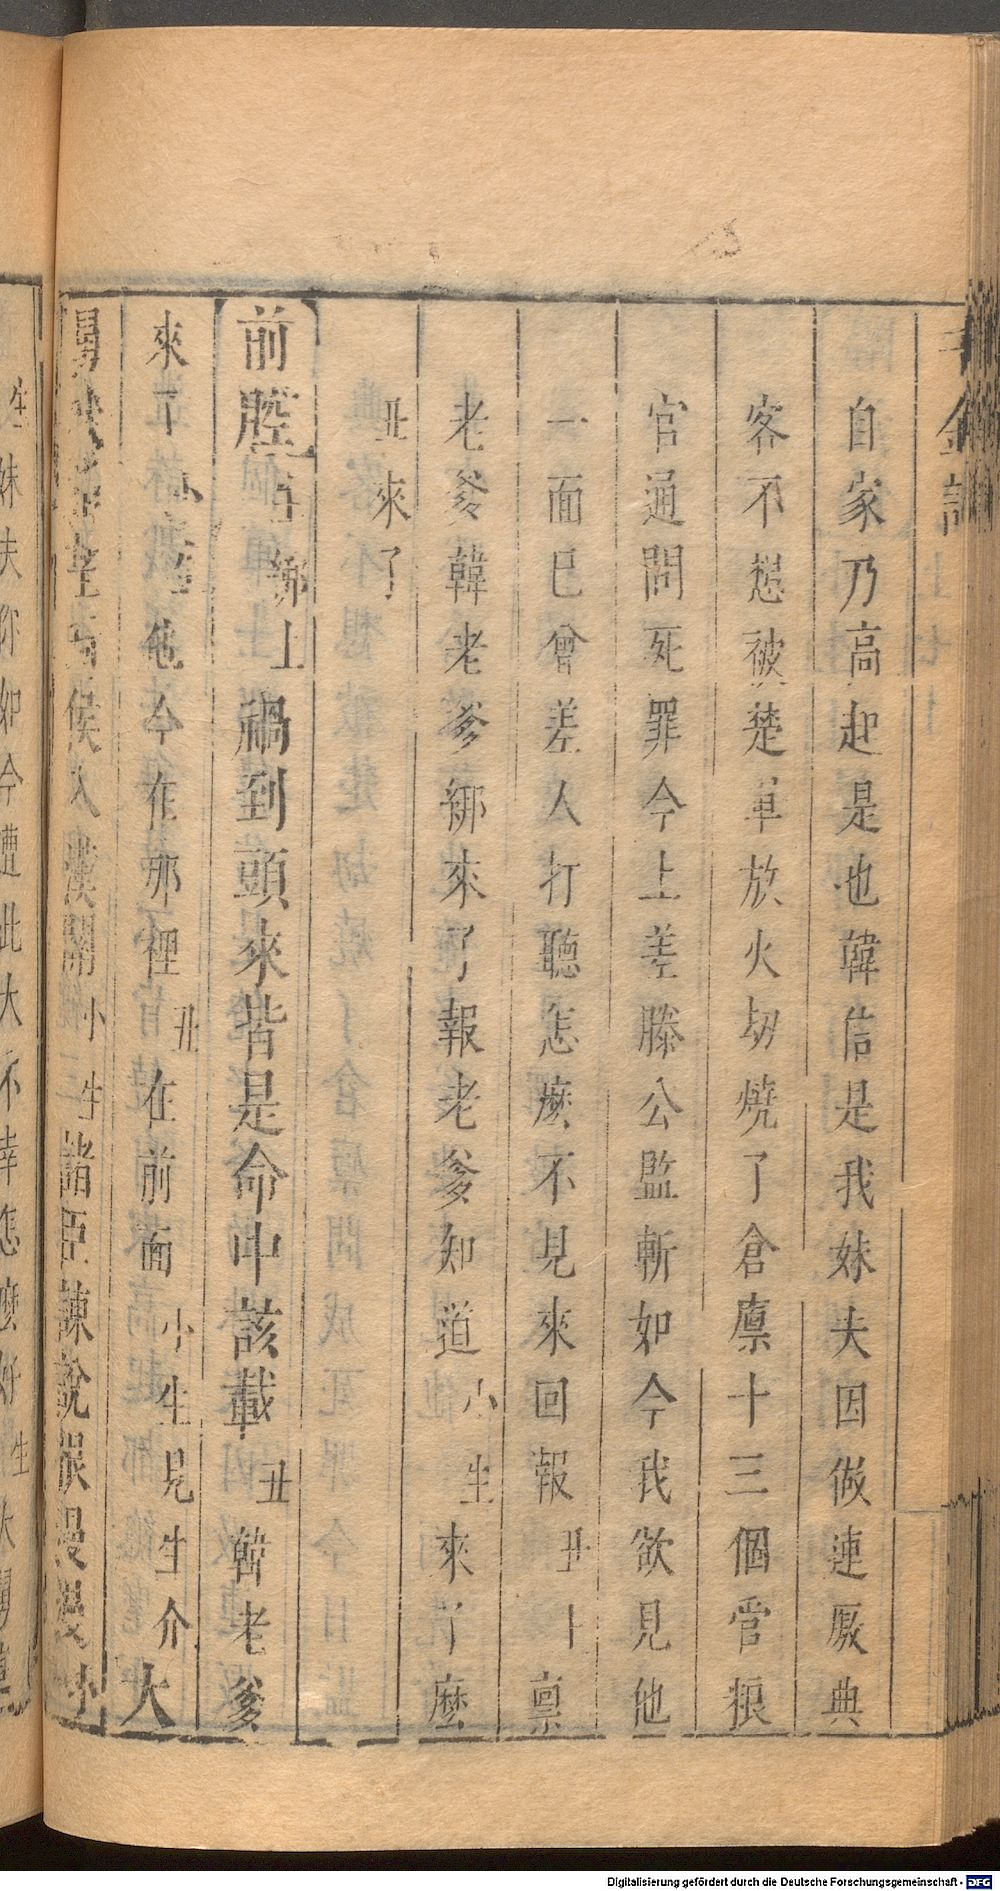 千金記
自家乃高起是也韓信是我妹夫因做連厫典
客不想被楚軍放火刼燒了倉廪十三個官粮
官通問死罪今上差滕公監斬如今我欲見他
一面已曾差人打聽怎麽不見來回報丑上禀
老爹韓老爹綁來了報老爹知道小生來了麽
丑來了
前腔生綁上禍到頭來皆是命中該載丑韓老爹
來了小生他今在那裡丑在前面小生見生介大
侯入漢關小生諸臣諫說
生妹夫你如今遭此大不幸怎麽好生大舅
Digitalisierung gefördert durch die Deutsche Forschungsgemeinschaft - DFG